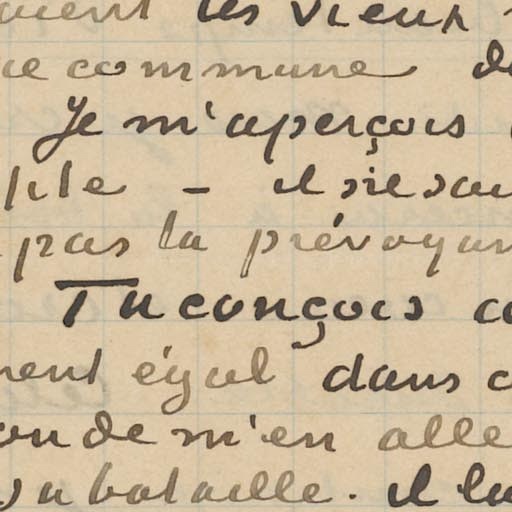 les vieux
commune de
Je m'aperçois
— il
pas la prévoyan
Tu conçois co
ment égal dans
de m'en alle
bataille. il